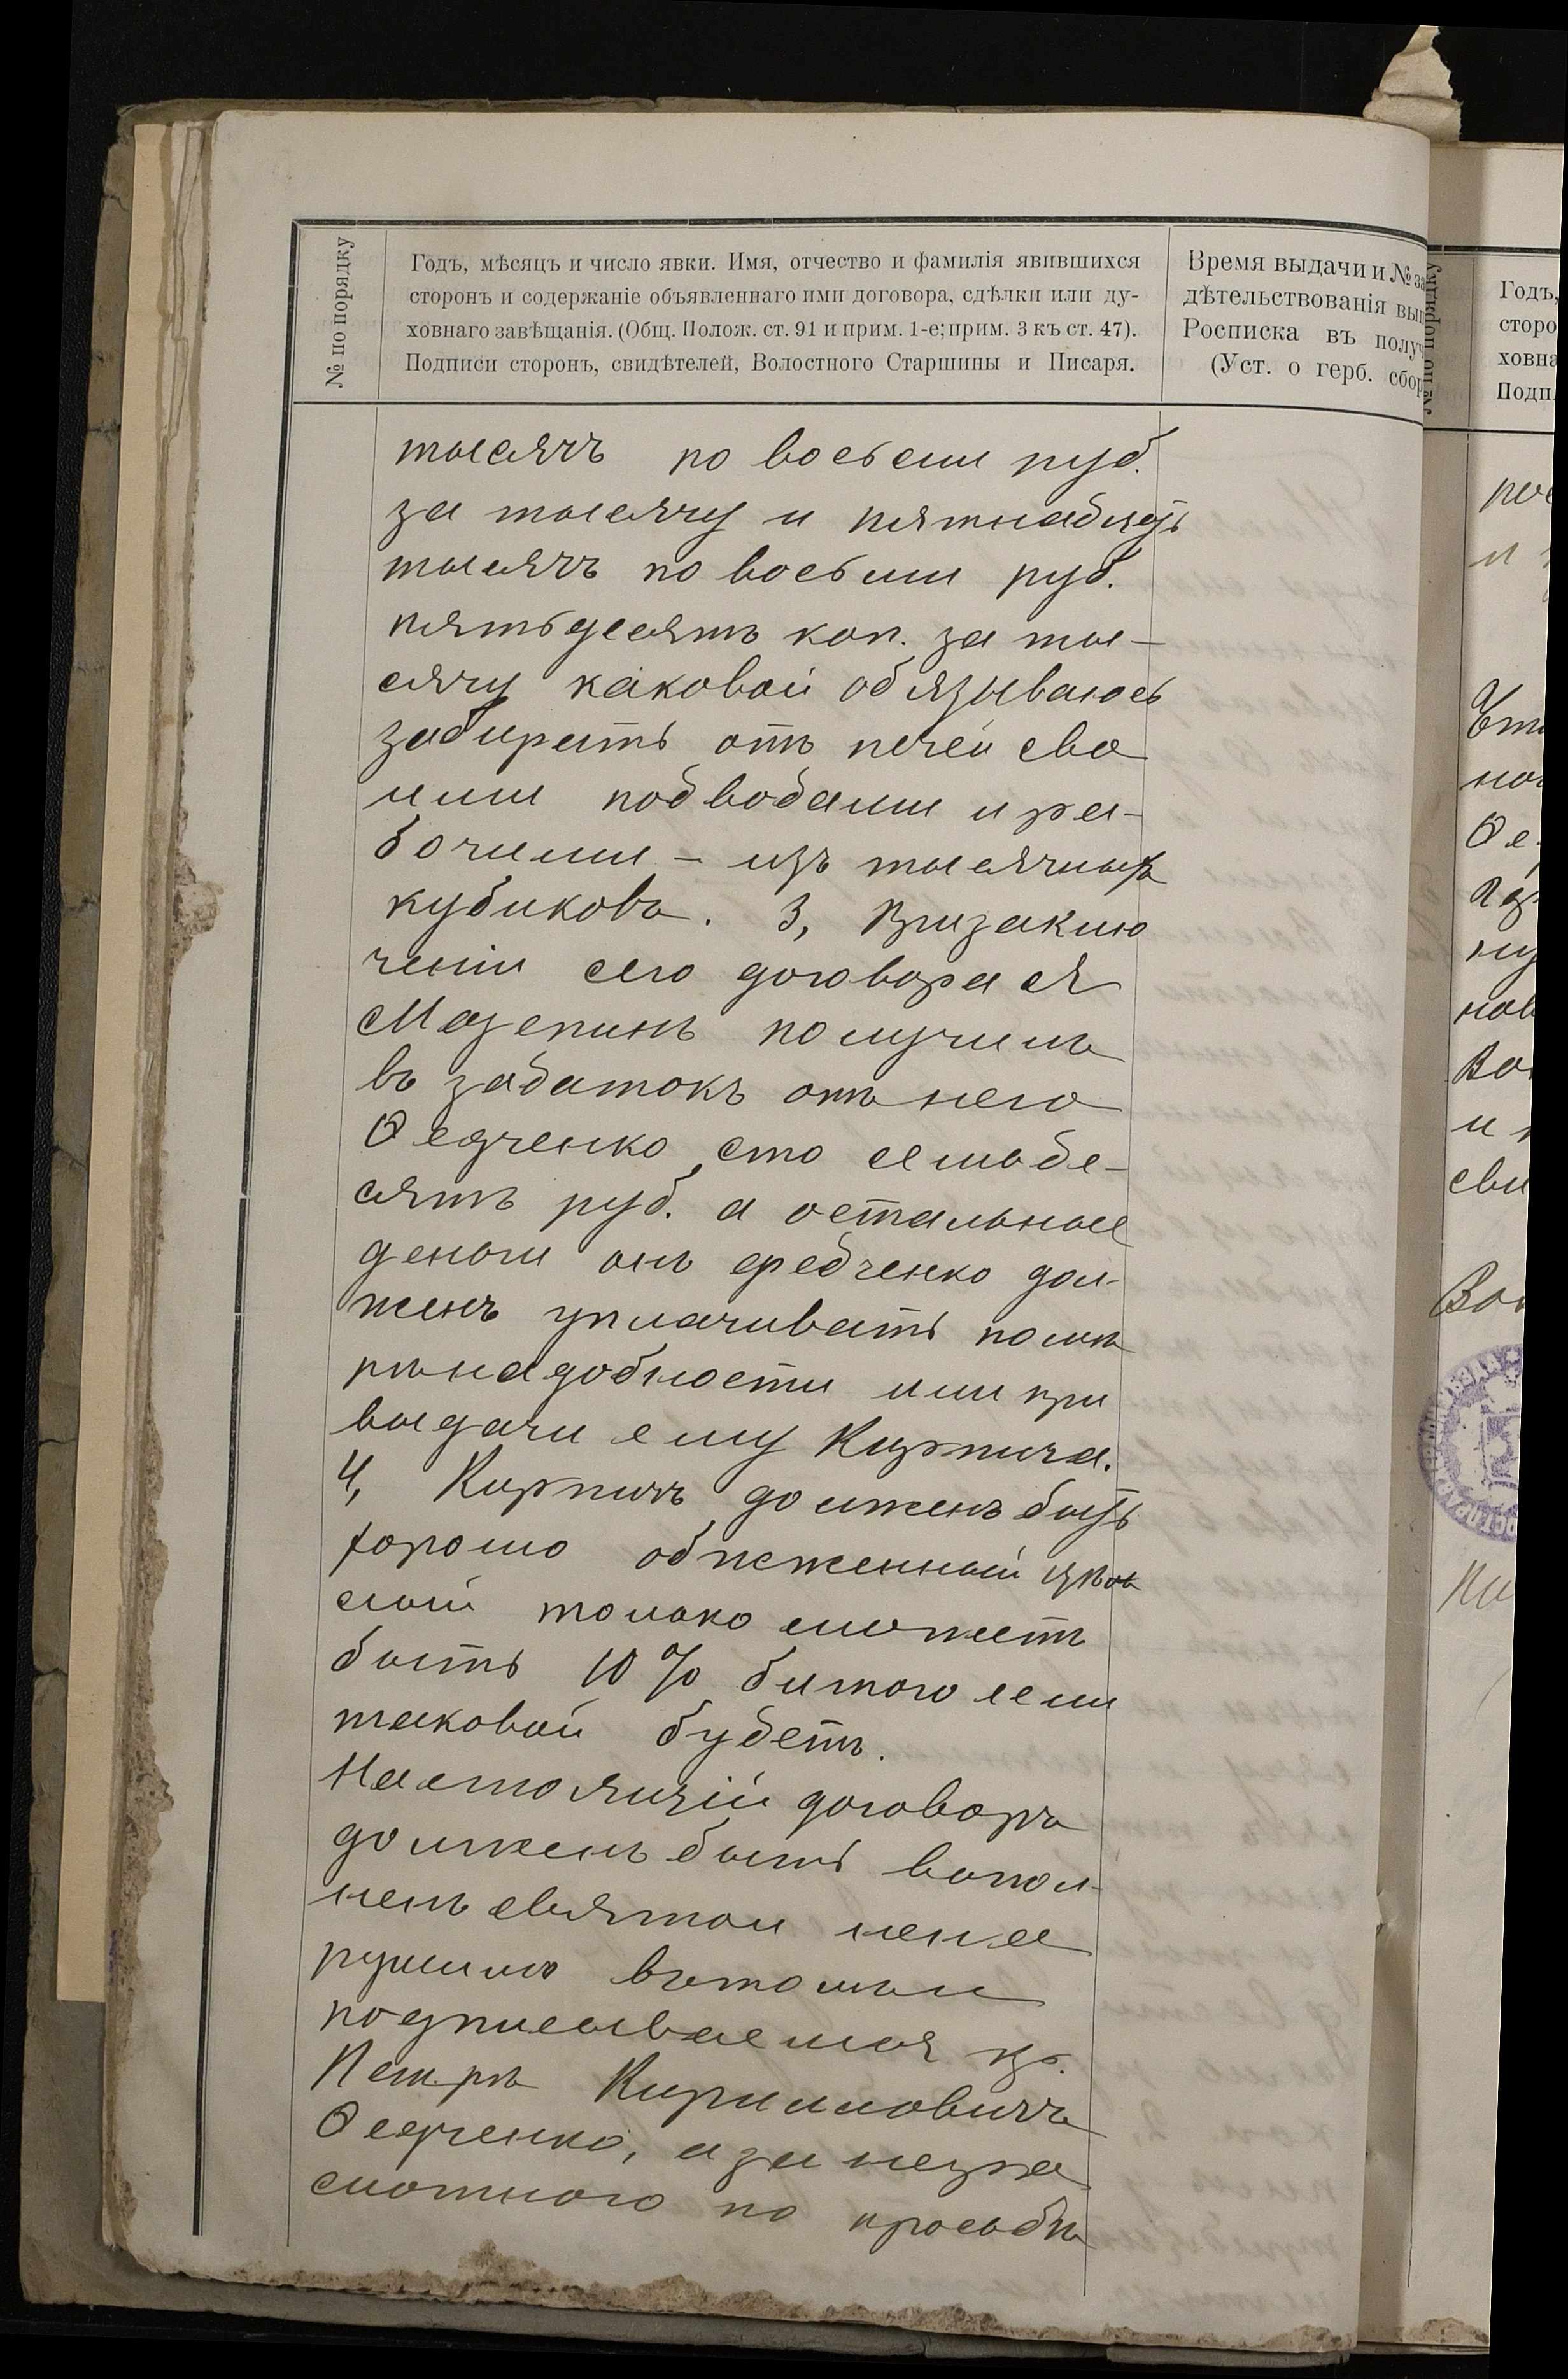 № по порядку
Годъ, мѣсяцъ и число явки. Имя, отчество и фамилія явившихся
сторонъ и содержаніе объявленнаго ими договора, сдѣлки или ду-
ховнаго завѣщанія. (Общ. Полож. ст. 91 и прим. 1-е; прим. 3 къ ст. 47).
Подписи сторонъ, свидѣтелей, Волостного Старшины и Писаря.
Время выдачи и № за
дѣтельствованія вып
Росписка въ получ
(Уст. о герб. сбор
тысячъ по восьми руб.
за тысячу и пятнадцать
тысячъ по восьми руб.
пятьдесятъ коп. за ты-
сячу каковой обязываюсь
забирать отъ печей сво
ими подводами и ра-
бочими - изъ тысячныхъ
кубиковъ. 3, Призаклю
ченіи сего договора я
Мазепинъ получилъ
въ задатокъ отъ него
Ѳедченко сто семьде-
сятъ руб. а остальные
деньги онъ Федченко дол-
женъ уплачивать помѣ
рѣ надобности или при
выдачи ему Кирпича.
4, Кирпичъ долженъ быть
хорошо обпеженный цѣло
сный только можетъ
быть 10% битого если
таковой будетъ.
Настоящій договоръ
долженъ быть выпол-
ненъ свято и нена
рушимо въ томъ и
подписываемся кр.
Петръ Кирилловичъ
Ѳедченко, а за негра
мотного по просьбѣ
Годъ,
сторо
ховна
Подп